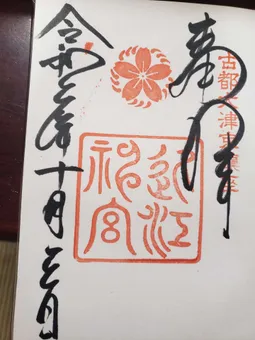 古都大津京鎮座
奉拝
近江
神宮
令和年十月日